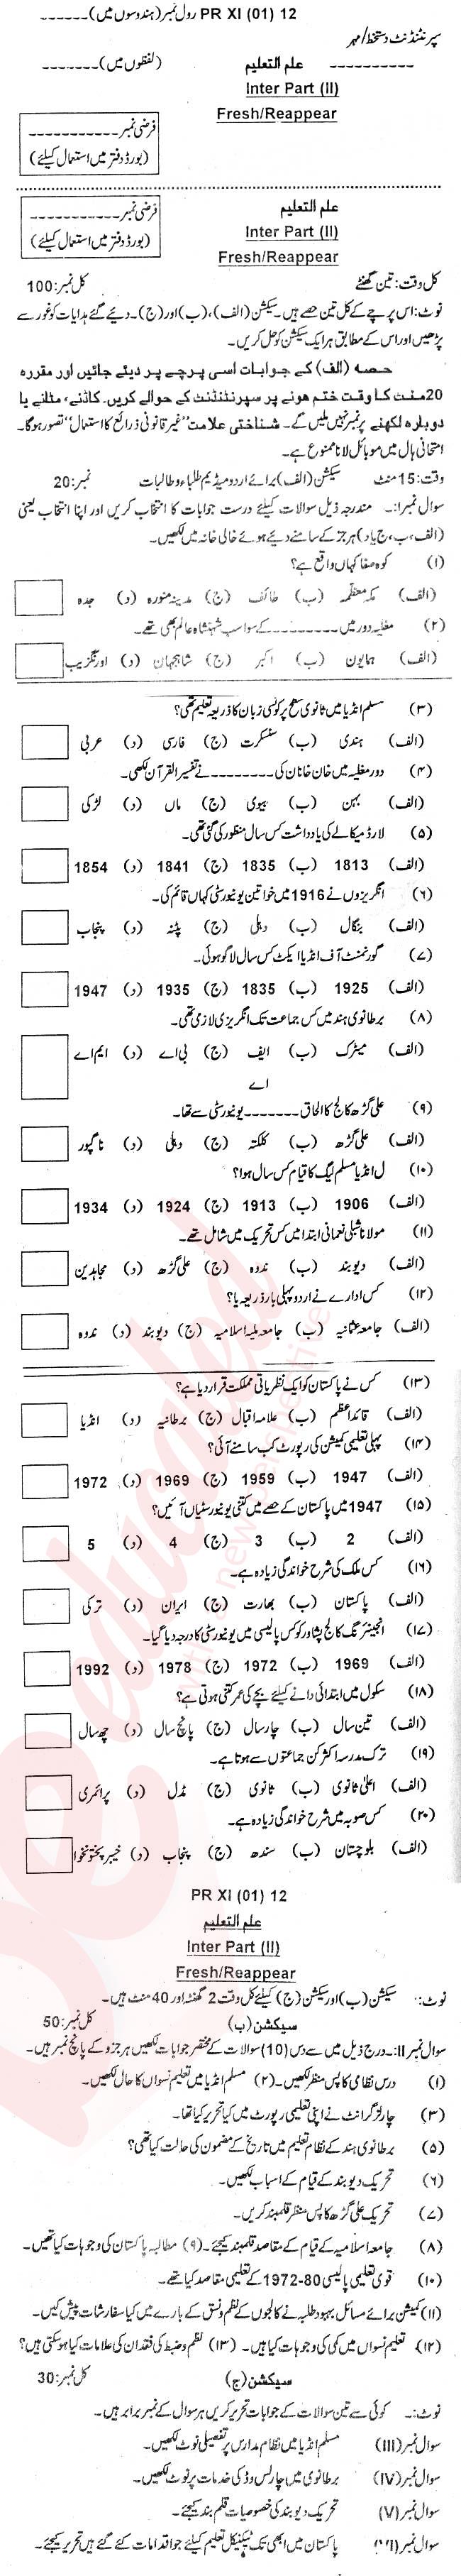 PR XI (01) 12 رول نمبر (ہندسوں میں)------
سپرنٹنڈنٹ دستخط/مہر
---------- علم التعلیم (لفظوں میں)-------
Inter Part (II)
Fresh/Reappear
فرضی نمبر-----------
(بورڈ دفتر میں استعمال کیلئے)
علم التعلیم
Inter Part (II)
Fresh/Reappear
فرضی نمبر-----------
(بورڈ دفتر میں استعمال کیلئے)
کل وقت: تین گھنٹے کل نمبر: 100
نوٹ: اس پرچے کے کل تین حصے ہیں۔ سیکشن (الف)، (ب) اور (ج)۔ دیئے گئے ہدایات کو غور سے
پڑھیں اور اس کے مطابق ہر ایک سیکشن کو حل کریں۔
حصہ (الف) کے جوابات اسی پرچے پر دیئے جائیں اور مقررہ
20منٹ کا وقت ختم ہونے پر سپرنٹنڈنٹ کے حوالے کریں۔ کاٹنے، مٹانے یا
دوبارہ لکھنے پر نمبر نہیں ملیں گے۔ شناختی علامت "غیر قانونی ذرائع کا استعمال" تصور ہوگا۔
امتحانی ہال میں موبائل لانا ممنوع ہے۔
وقت: 15 منٹ سیکشن (الف) برائے اردو میڈیم طلباء و طالبات نمبر: 20
سوال نمبرI:۔ مندرجہ ذیل سوالات کیلئے درست جوابات کا انتخاب کریں اور اپنا انتخاب یعنی
(الف، ب، ج یا د) ہر جز کے سامنے دیئے ہوئے خالی خانہ میں لکھیں۔
(۱) کوہ صفا کہاں واقع ہے؟
(الف) مکہ معظمہ (ب) طائف (ج) مدینہ منورہ (د) جدہ
(۲) مغلیہ دور میں--------- کے سوا سب شہنشاہ عالم بھی تھے۔
(الف) ہمایون (ب) اکبر (ج) شاہجہان (د) اورنگزیب
(۳) مسلم انڈیا میں ثانوی سطح پر کونسی زبان کا ذریعہ تعلیم تھی؟
(الف) ہندی (ب) سنسکرت (ج) فارسی (د) عربی
(۴) دور مغلیہ میں خان خانان کی--------- نے تفسیر القرآن لکھی۔
(الف) بہن (ب) بیوی (ج) ماں (د) لڑکی
(۵) لارڈ میکالے کی یادداشت کس سال منظور کی گئی تھی۔
(الف) 1813 (ب) 1835 (ج) 1841 (د) 1854
(۶) انگریزوں نے 1916 میں خواتین یونیورسٹی کہاں قائم کی۔
(الف) بنگال (ب) دہلی (ج) پٹنہ (د) پنجاب
(۷) گورنمنٹ آف انڈیا ایکٹ کس سال لاگو ہوئی۔
(الف) 1925 (ب) 1835 (ج) 1935 (د) 1947
(۸) برطانوی ہند میں کس جماعت تک انگریزی لازمی تھی۔
(الف) میٹرک (ب) ایف (ج) بی اے (د) ایم اے
اے
(۹) علی گڑھ کالج کا الحاق------- یونیورسٹی سے تھا۔
(الف) علی گڑھ (ب) کلکتہ (ج) دہلی (د) ناگپور
(۱۰) ل انڈیا مسلم لیگ کا قیام کس سال ہوا؟
(الف) 1906 (ب) 1913 (ج) 1924 (د) 1934
(۱۱) مولانا شبلی نعمانی ابتدا میں کس تحریک میں شامل تھے۔
(الف) دیوبند (ب) ندوہ (ج) علی گڑھ (د) مجاہدین
(۱۲) کس ادارے نے اردو پہلی بار ذریعہ یا؟
(الف) جامعہ عثمانیہ (ب) جامعہ ملیہ اسلامیہ (ج) دیوبند (د) ندوہ
(۱۳) کس نے پاکستان کو ایک نظریاتی مملکت قرار دیا ہے؟
(الف) قائداعظم (ب) علامہ اقبال (ج) برطانیہ (د) انڈیا
(۱۴) پہلی تعلیمی کمیشن کی رپورٹ کب سامنے آئی؟
(الف) 1947 (ب) 1959 (ج) 1969 (د) 1972
(۱۵) 1947 میں پاکستان کے حصے میں کتنی یونیورسٹیاں آئیں؟
(الف) 2 (ب) 3 (ج) 4 (د) 5
(۱۶) کس ملک کی شرح خواندگی زیادہ ہے۔
(الف) پاکستان (ب) بھارت (ج) ایران (د) ترکی
(۱۷) انجینئرنگ کالج پشاور کو کس پالیسی میں یونیورسٹی کا درجہ دیا گیا۔
(الف) 1969 (ب) 1972 (ج) 1978 (د) 1992
(۱۸) سکول میں ابتدائی دانے کیلئے بچے کی عمر کتنی ہوتی ہے؟
(الف) تین سال (ب) چار سال (ج) پانچ سال (د) چھ سال
(۱۹) ترک مدرسہ اکثر کن جماعتوں سے ہوتا ہے۔
(الف) اعلیٰ ثانوی (ب) ثانوی (ج) مڈل (د) پرائمری
(۲۰) کس صوبہ میں شرح خواندگی زیادہ ہے۔
(الف) بلوچستان (ب) سندھ (ج) پنجاب (د) خیبر پختونخوا
PR XI (01) 12
علم التعلیم
Inter Part (II)
Fresh/Reappear
نوٹ:۔ سیکشن (ب) اور سیکشن (ج) کیلئے کل وقت 2 گھنٹہ اور 40 منٹ ہیں۔
سیکشن (ب) کل نمبر: 50
سوال نمبرII:۔ درج ذیل میں سے دس (10) سوالات کے مختصر جوابات لکھیں ہر جزو کے پانچ نمبر ہیں۔
(۱) درس نظامی کا پس منظر لکھیں۔ (۲) مسلم انڈیا میں تعلیم نسواں کا حال لکھیں۔
(۳) چارلز گرانٹ نے اپنی تعلیمی رپورٹ میں کیا تحریر کیا تھا۔
(۵) برطانوی ہند کے نظام تعلیم میں تاریخ کے مضمون کی حالت کیا تھی؟
(۶) تحریک دیوبند کے قیام کے اسباب لکھیں۔
(۷) تحریک علی گڑھ کا پس منظر قلمبند کریں۔
(۸) جامعہ اسلامیہ کے قیام کے مقاصد قلمبند کیجئے۔ (۹) مطالبہ پاکستان کی وجوہات کیا تھیں۔
(۱۰) قومی تعلیمی پالیسی 80-1972 کے تعلیمی مقاصد کیا تھے۔
(۱۱) کمیشن برائے مسائل بہبود طلبہ نے کالجوں کے نظم و نسق کے بارے میں کیا سفارشات پیش کیں۔
(۱۲) تعلیم نسواں میں کمی کی وجوہات کیا ہیں۔ (۱۳) نظم و ضبط کی فقدان کی علامات کیا ہوسکتی ہیں؟
سیکشن (ج) کل نمبر: 30
نوٹ:۔ کوئی سے تین سوالات کے جوابات تحریر کریں ہر سوال کے نمبر برابر ہیں۔
سوال نمبر (III) مسلم انڈیا میں نظام مدارس پر تفصیلی نوٹ لکھیں۔
سوال نمبر (IV) برطانوی میں چارلس وڈ کی خدمات پر نوٹ لکھیں۔
سوال نمبر (V) تحریک دیوبند کی خصوصیات قلم بند کیجئے۔
سوال نمبر (VI) پاکستان میں ابھی تک ٹیکنیکل تعلیم کیلئے جو اقدامات کئے گئے ہیں تحریر کیجئے۔